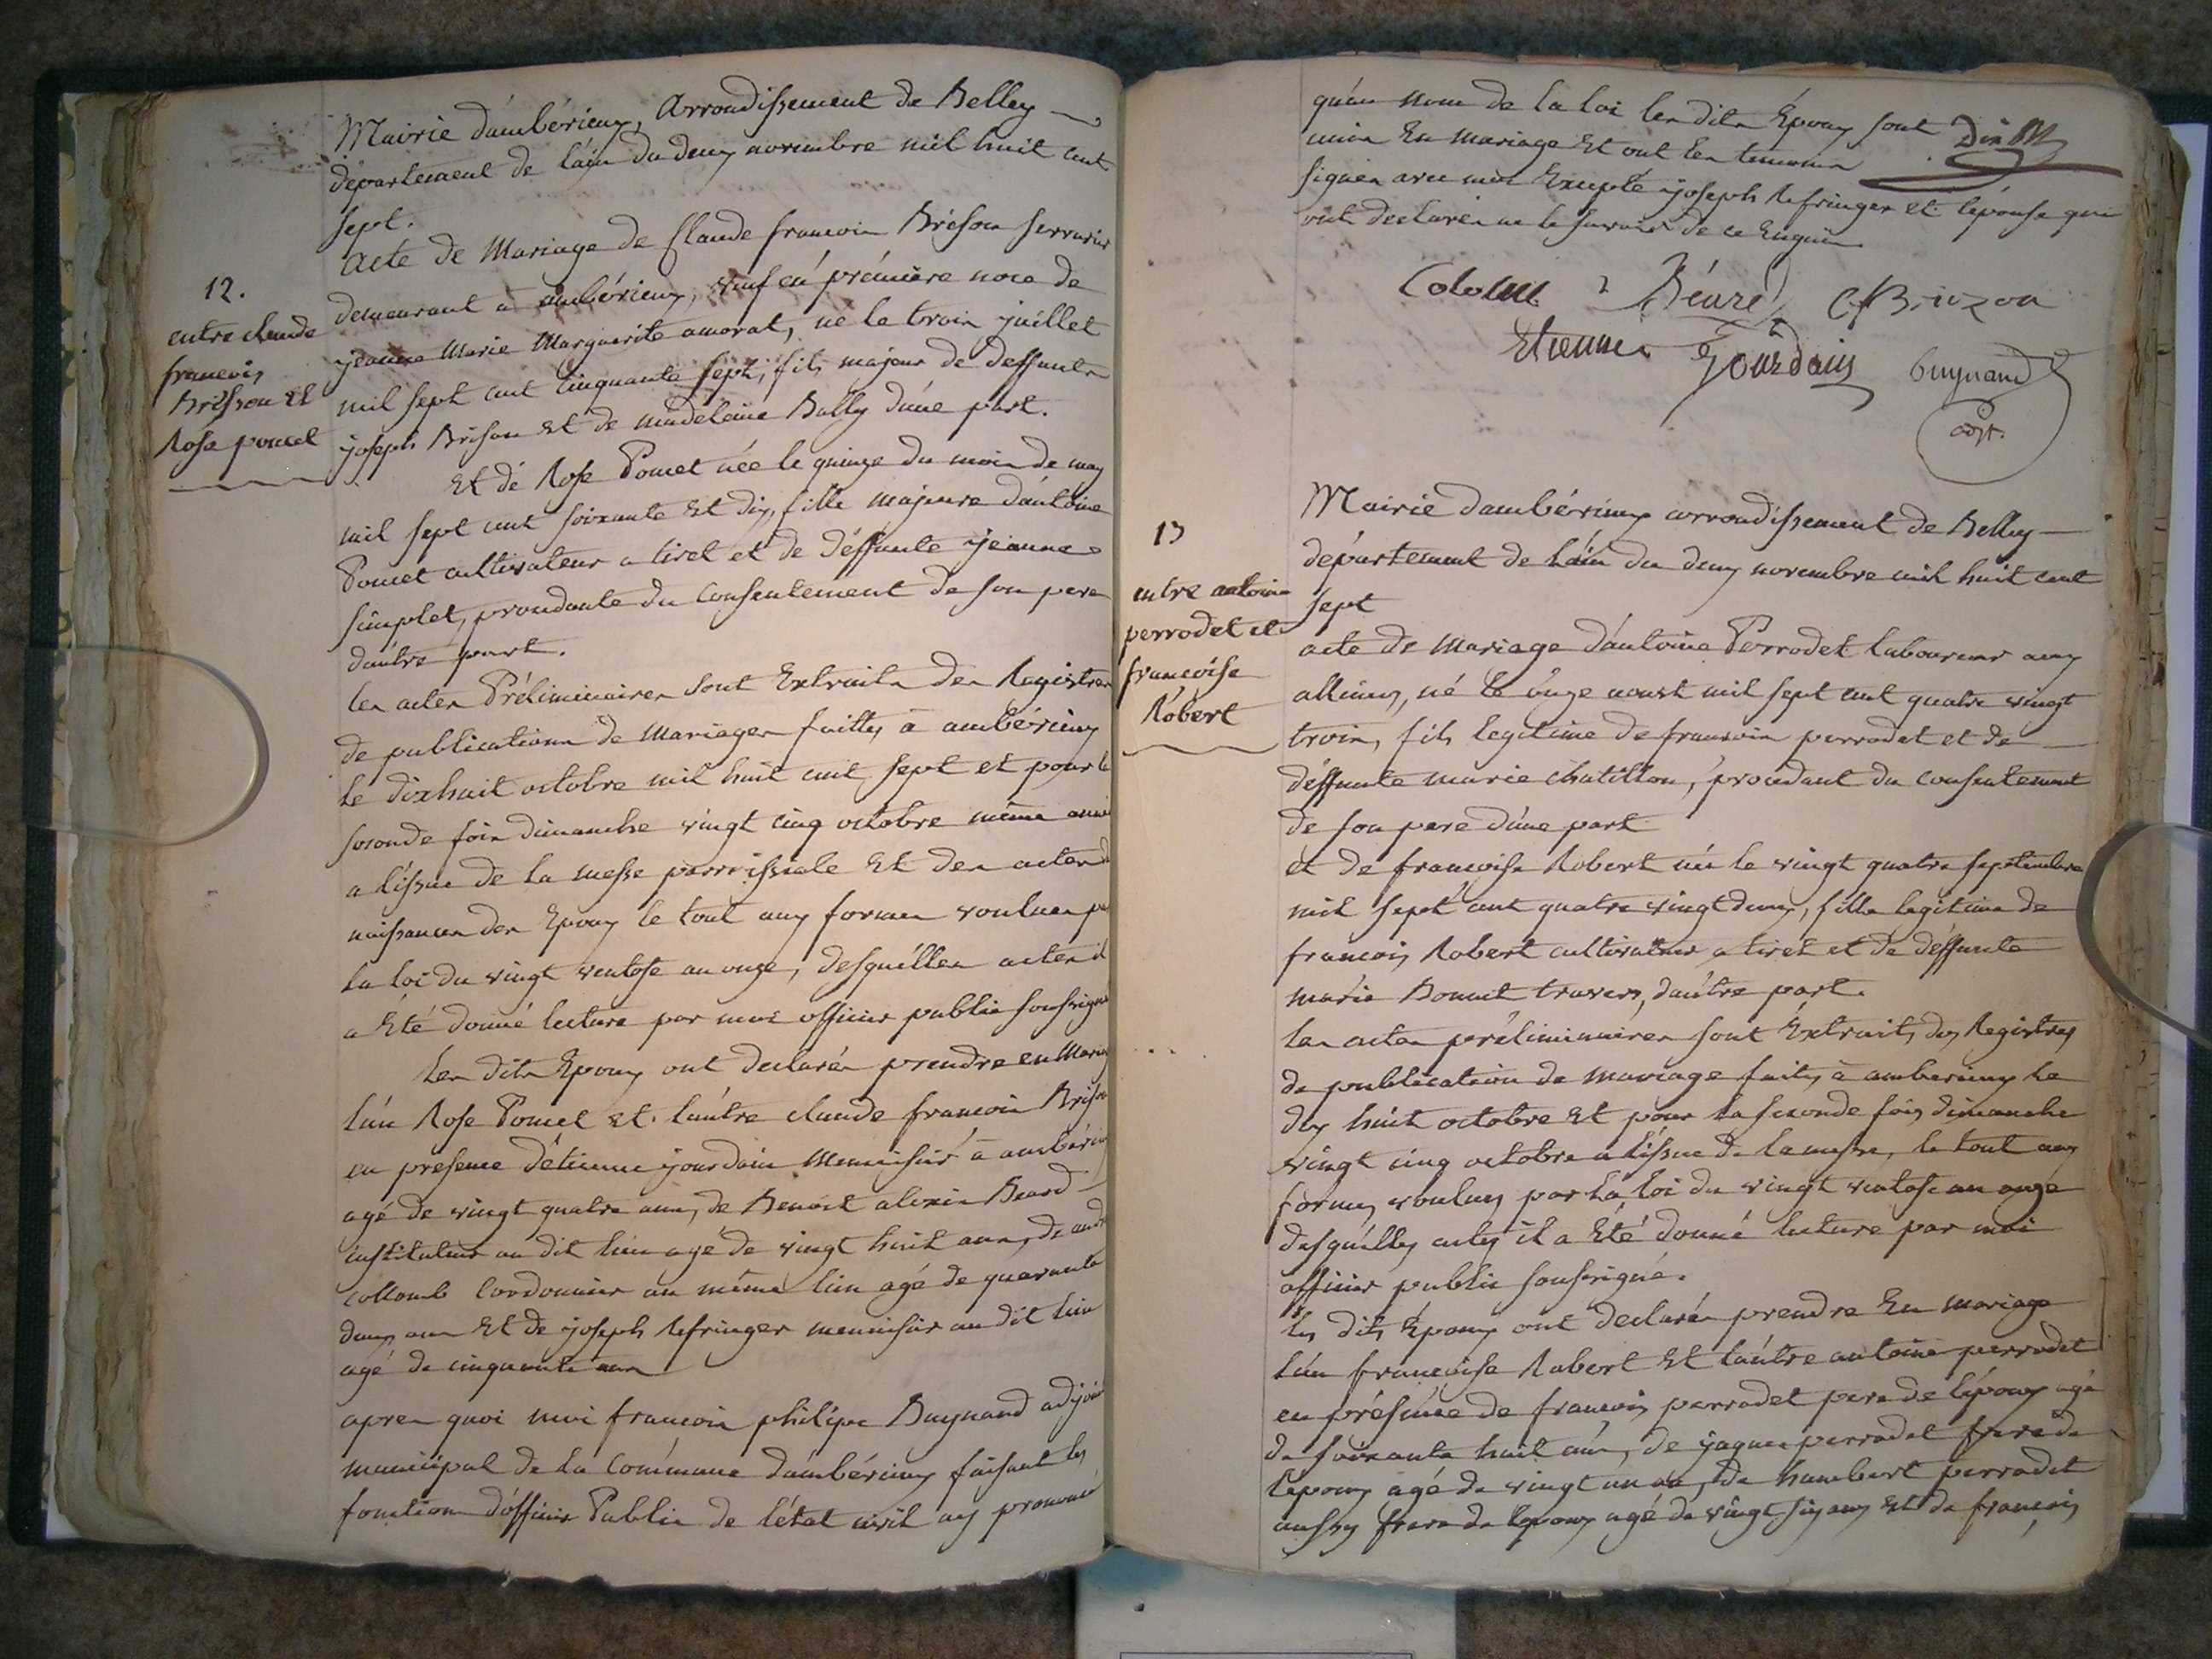 Mairie d'ambérieux, Arrondissement de Belley
département de l'ain du deux novembre mil huit cent
sept.
acte de Mariage de Claude francois Brison serrurier
12.
entre claude
francois
Brisson et
Rose poncet
demeurant a ambérieux, veuf en première noce de
jeanne Marie Marguerite amorat, né le trois juillet
mil sept cent cinquante sept, fils majeur de deffunts
joseph Brison et de madelaine Bally d'une part.
Et de Rose Poncet née le quinze du mois de may
mil sept cent soixante et dix, fille majeure d'antoine
Poncet cultivateur a tiret et de déffunte jeanne
simplet, procédante du consentement de son pere
d'autre part.
les actes Préliminaires sont Extraits des Registres
de publications de Mariages faittes à ambérieux
le dixhuit octobre mil huit cent sept et pour la
seconde fois dimanche vingt cinq octobre même année
a l'issue de la messe parroissiale Et des actes de
naissances des Epoux le tout aux formes voulues par
la loi du vingt ventose an onze, desquelles actes il
a Eté donné lecture par moi officier public soussigné
Les dits Epoux ont declarés prendre en Mariage
l'un Rose Poncet et l'autre claude francois Brison
en presence d'étienne jourdain Menuisier à ambérieux
agé de vingt quatre ans, de Benoit alexis Beard
instituteur au dit lieu agé de vingt huit ans, de andré
collomb Cordonnier au même lieu agé de quarante
deux ans Et de joseph Refringer menuisier au dit lieu
agé de cinquante ans
apres quoi moi francois philipe Buynand adjoint
municipal de la Commune d'ambérieux faisant les
fonctions d'officier Public de l'état civil ay prononcé
qu'au nom de la loi les dits Époux sont
unis En mariage Et ont les temoins
signés avec moi Excepté joseph Refringer et l'épouse qui
ont declarés ne le savoir de ce Enquis
Béard C f Brizon
Etienne Jourdain Buynand
adjt.
13
entre antoine
perrodet et
francoise
Robert
Mairie d'ambérieux arrondissement de Belley
département de l'ain du deux novembre mil huit cent
sept
acte de Mariage d'antoine Perrodet laboureur aux
allimes, né le onze aoust mil sept cent quatre vingt
trois, fils legitime de francois perrodet et de
déffunte marie chatillon, procédant du consentement
de son pere d'une part
et de francoise Robert née le vingt quatre septembre
mil sept cent quatre vingt deux, fille legitime de
francois Robert cultivateur a tiret et de déffunte
marie Bonnet travers, d'autre part.
les actes préliminaires sont Extraits des Registres
de publication de mariage faites à amberieux le
dix huit octobre Et pour la seconde fois dimanche
vingt cinq octobre a l'issue de la messe, le tout aux
formes voulues par la loi du vingt ventose an onze
desquelles actes il a Eté donné lecture par moi
officier public soussigné.
les dits Époux ont declarés prendre En mariage
l'un francoise Robert Et l'autre antoine perrodet
en présence de francois perrodet pere de l'époux agé
de soixante huit ans, de jaques perrodet frere de
l'epoux agé de vingt un ans, de humbert perrodet
aussy frere de l'epoux agé de vingt six ans Et de francois